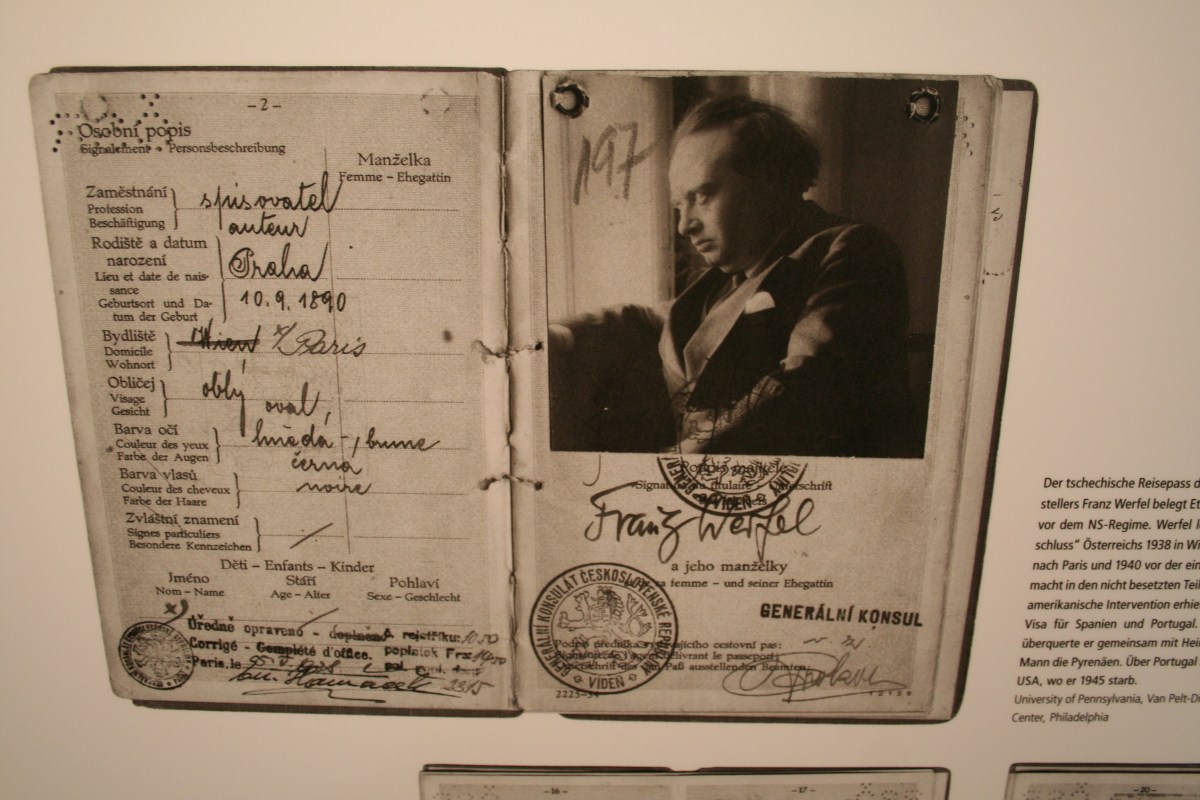 – 2 –
Osobní popis
Signalement – Personsbeschreibung
Manželka
Femme – Ehegattin
Zaměstnání
Profession
Beschäftigung
spisovatel
auteur
Rodiště a datum
narození
Lieu et date de nais-
sance
Geburtsort und Da-
tum der Geburt
Praha
10. 9. 1890
Bydliště
Domicile
Wohnort
Wien x/Paris
Obličej
Visage
Gesicht
oblý
oval,
Barva očí
Couleur des yeux
Farbe der Augen
hnědá -, brune
Barva vlasů
Couleur des cheveux
Farbe der Haare
černa
noire
Zvláštní znamení
Signes particuliers
Besondere Kennzeichen
Děti – Enfants – Kinder
Jméno
Nom – Name
Stáří
Age – Alter
Pohlaví
Sexe – Geschlecht
x)
Úředně opraveno - doplneno
Corrigé - Complété d'office.
Paris, le
á rejstříku:
poplatek Frs
197
Podpis majitele
Signature du titulaire – Unterschrift
VÍDEŇ
Franz Werfel
a jeho manželky
sa femme – und seiner Ehegattin
GENERÁLNÍ KONSULÁT ČESKOSLOVENSKÉ REPUBLIKY
VÍDEŇ
GENERÁLNÍ KONSUL
Podpis úředníka vydávajícího cestovní pas:
Signature de l'agent délivrant le passeport:
Unterschrift des den Paß ausstellenden Beamten:
2225-34
Der tschechische Reisepass d
stellers Franz Werfel belegt Et
vor dem NS-Regime. Werfel l
schluss" Österreichs 1938 in Wi
nach Paris und 1940 vor der ein
macht in den nicht besetzten Teil
amerikanische Intervention erhie
Visa für Spanien und Portugal.
überquerte er gemeinsam mit Hei
Mann die Pyrenäen. Über Portugal
USA, wo er 1945 starb.
University of Pennsylvania, Van Pelt-Di
Center, Philadelphia
– 16 –
– 17 –
– 20 –